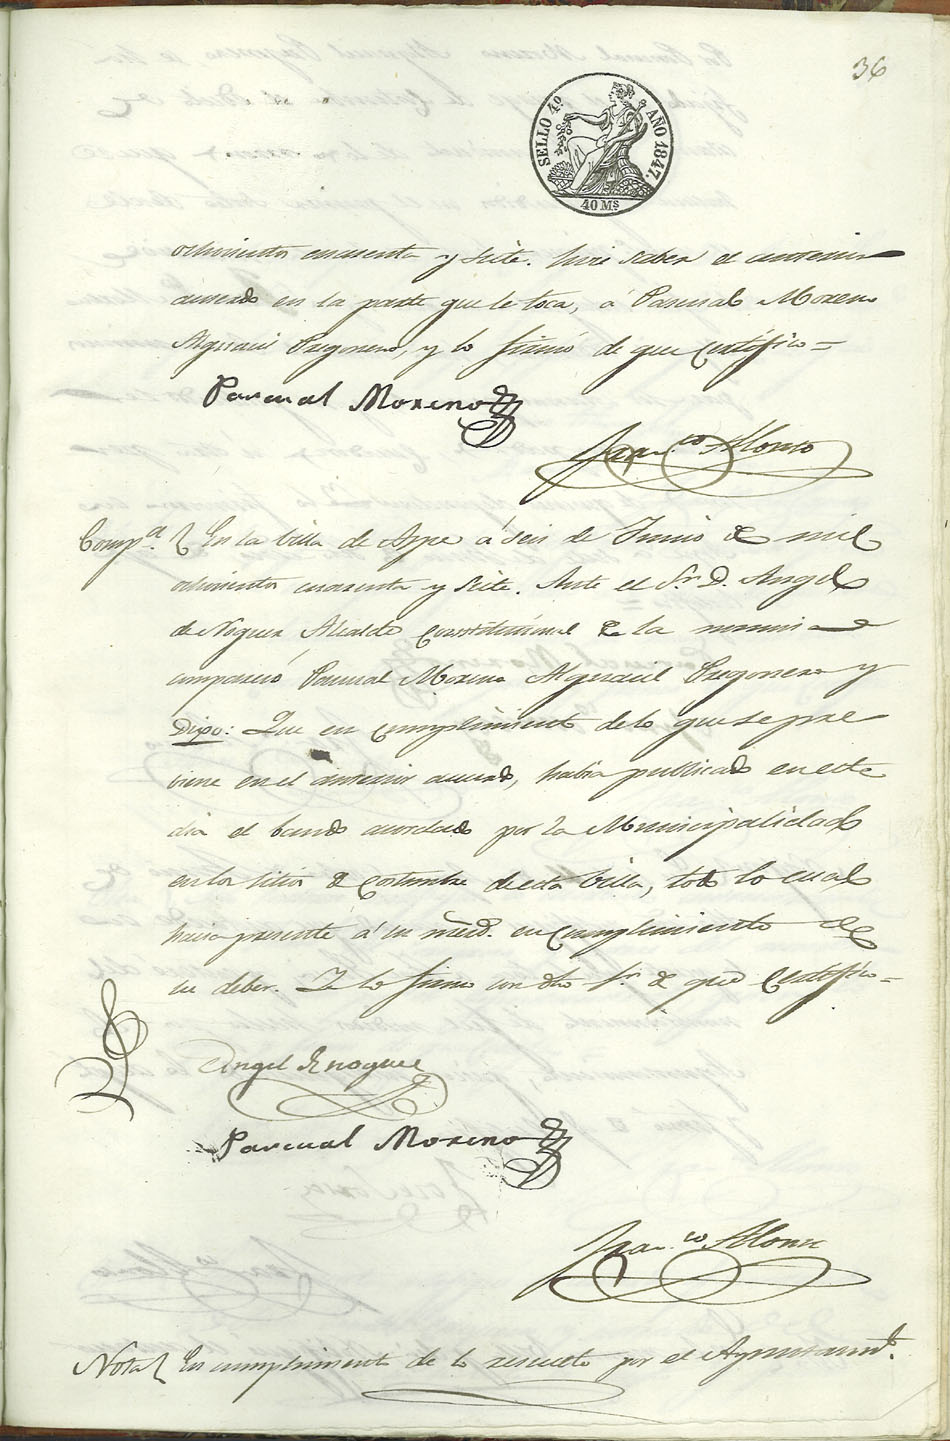 36
SELLO 4º AÑO 1847.
40 Ms
ochocientos cuarenta y siete. hice saber el anterior
acuerdo en la parte que le toca, á Pascual Moreno
Alguacil Pregonero, y lo firmó de que certifico =
Pascual Moreno
Fran.co Alonso
Comp.a En la Villa de Aspe á seis de Junio de mil
ochocientos cuarenta y siete. Ante el Sr. D. Angel
de Noguer Alcalde Constitucional de la misma
compareció Pascual Moreno Alguacil Pregonero y
Dixo: Que en cumplimiento de lo que se pre
viene en el anterior acuerdo, habia publicado en este
dia el bando acordado por la Municipalidad
en los sitios de costumbre de esta Villa, todo lo cual
hacia presente á su merd. en cumplimiento de
su deber. Y lo firmó con dho Sr. de que certifico =
Angel Denoguer
Pascual Moreno
Fran.co Alonso
Nota En cumplimiento de lo resuelto por el Ayuntamt.